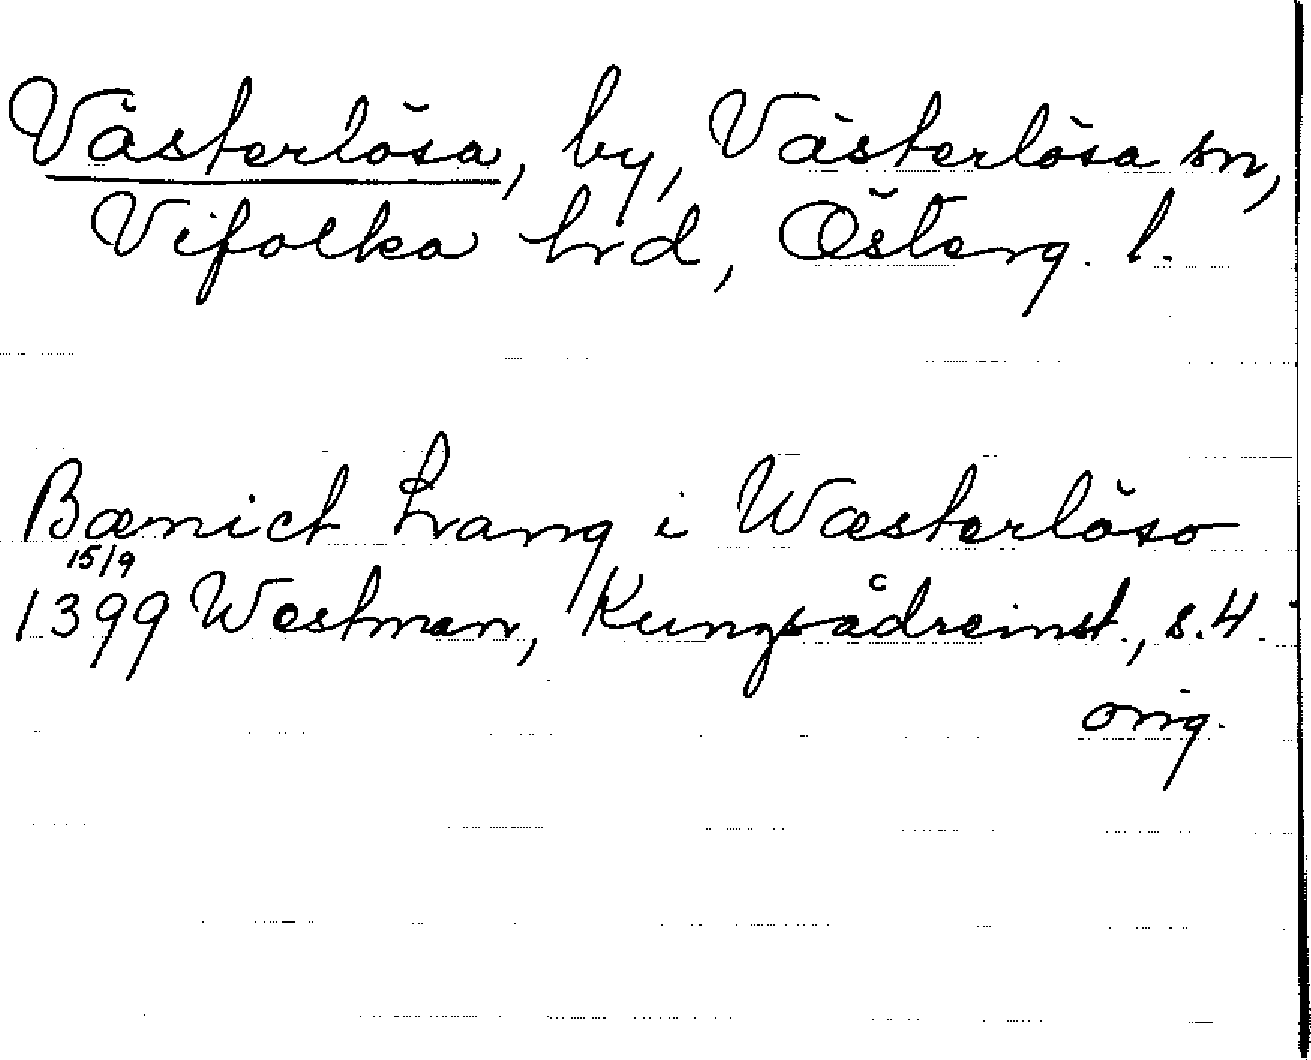 Västerlösa, by, Västerlösa sn,
Vifolka hrd, Österg. l.
Bænict Lrang i Wæsterløso
15/9
1399 Westman, Kungsådreinst., s. 4.
orig.